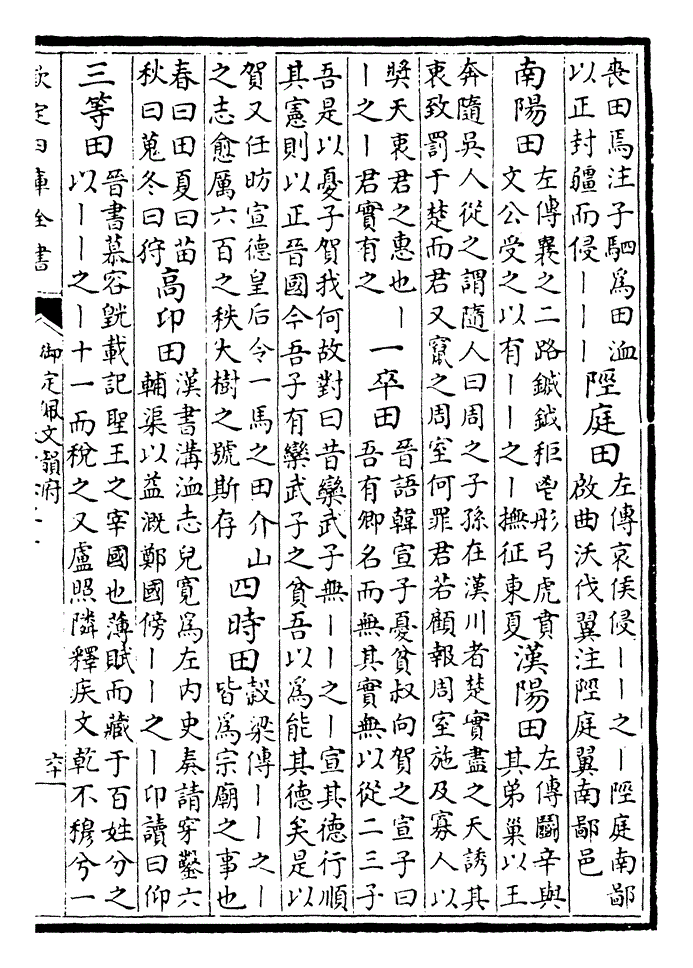 喪田焉注子駟為田洫
以正封疆而侵丨丨丨
陘庭田
左傳哀侯侵丨丨之丨陘庭南鄙
啟曲沃伐翼注陘庭翼南鄙邑
南陽田
左傳襄之二路鏚鉞秬鬯彤弓虎賁
文公受之以有丨丨之丨撫征東夏
漢陽田
左傳鬭辛與
其弟巢以王
奔隨吳人從之謂隨人曰周之子孫在漢川者楚實盡之天誘其
衷致罰于楚而君又竄之周室何罪君若顧報周室施及寡人以
奬天衷君之惠也丨
丨之丨君實有之
一卒田
晉語韓宣子憂貧叔向賀之宣子曰
吾有卿名而無其實無以從二三子
吾是以憂子賀我何故對曰昔欒武子無丨丨之丨宣其德行順
其憲則以正晉國今吾子有欒武子之貧吾以為能其德矣是以
賀又任昉宣德皇后令一馬之田介山
之志愈厲六百之秩大樹之號斯存
四時田
穀梁傳丨丨之丨
皆為宗廟之事也
春曰田夏曰苗
秋曰蒐冬曰狩
高卬田
漢書溝洫志兒寬為左内史奏請穿鑿六
輔渠以益溉鄭國傍丨丨之丨卬讀曰仰
三等田
晉書慕容皝載記聖王之宰國也薄賦而藏于百姓分之
以丨丨之丨十一而稅之又盧照隣釋疾文乾不穆兮一
欽定四庫全書
御定佩文韻府
六十